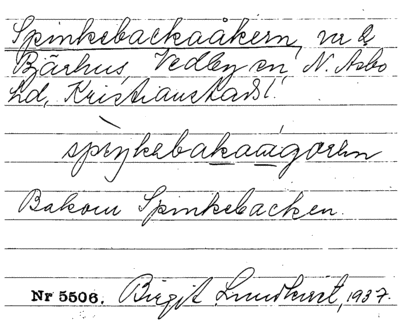 Spinkebackaåkern, nr 2
Bjärhus, Vedby sn, N. Åsbo
hd, Kristianstads l.
spìŋkebakaágoren
Bakom Spinkebacken.
Nr 5506. Birgit Lundkvist, 1937.